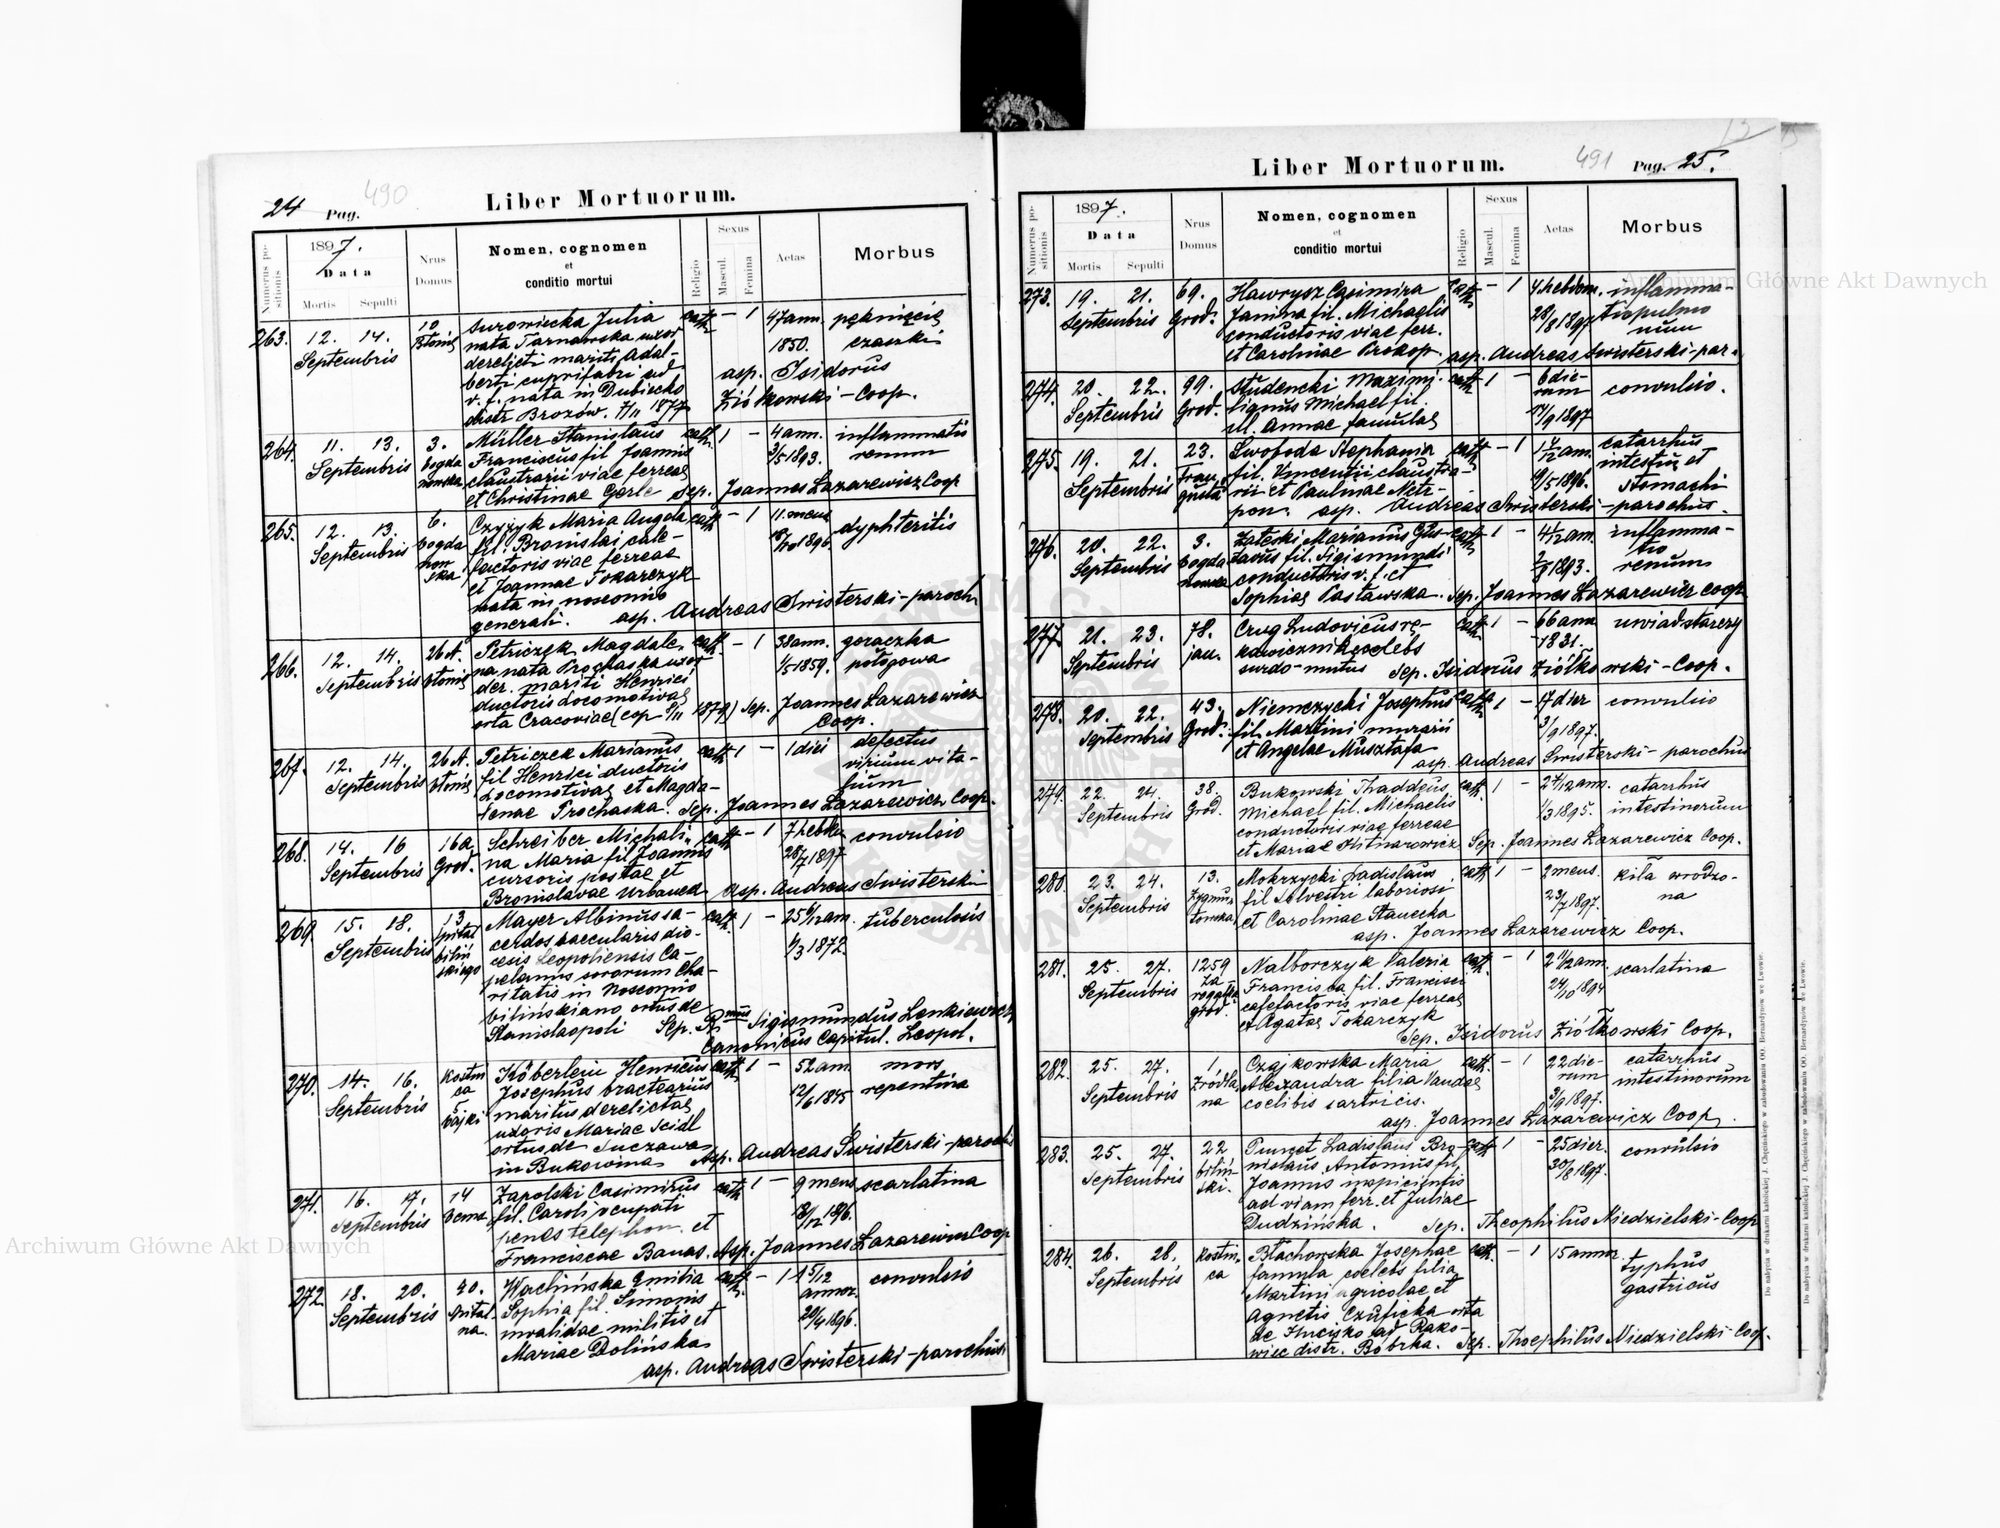 24 Pag. 490
Liber Mortuorum.
Numerus positionis
1897.
Data
Mortis Sepulti
Nrus Domus
Nomen, cognomen
et
conditio mortui
Religio
Sexus
Mascul.
Femina
Aetas
Morbus
263. 12. 14. Septembris 12
Surowiecka Julia cath. – 1 47 ann. pęknięcie
nata Tarnawska uxor 1850. czaszki
derelicti mariti Adal- asp. Isidorus
berti cuprifabri ad Ziółkowski – Coop.
v. f. nata in Dubiecko
distr. Brozów. 7/11 1877
264. 11. 13. Septembris 3. Bogdanowska
Müller Stanislaus cath. 1 – 4 ann. inflammatis
Franciscus fil Joannis 3/5 1893. renum
claustrarii viae ferreae
et Christinae Gerle Sep. Joannes Lazarewicz Coop
265. 12. 13. Septembris 6. Bogdanowska
Czyżyk Maria Angela cath – 1 11. mens dyphteritis
fil. Bronislai cale- 18/10 1896.
factoris viae ferreae
et Joannae Tokarczyk
nata in nosocomio
generali. asp. Andreas Swisterski – paroch
266. 12. 14. Septembris 26 A.
Petriczek Magdale- cath. – 1 38 ann. gorączka
na nata Prochaska uxor 1/5 1859. połogowa
der. mariti Henrici
ductoris locomotivae
orta Cracoviae (cop 8/11 1879) Sep. Joannes Lazarewicz
Coop.
267. 12. 14. Septembris 26 A.
Petriczek Marianus cath 1 – 1 diei defectus
fil Henrici ductoris virium vita-
Locomotivae et Magda- lium
lenae Prochaska. Sep. Joannes Lazarewicz Coop.
268. 14. 16 Septembris 16a Grod.
Schreiber Michali- cath – 1 7 hebd. convulsio
na Maria fil Joannis 28/7 1897
cursoris postae et
Bronislavae Urbanek asp. Andreas Swisterski
269. 15. 18. Septembris 13 Szpital bilińskiego
Mayer Albinus sa- cath. 1 – 25 6/12 am. tuberculosis
cerdos saecularis dio- 1/3 1872.
cesis Leopoliensis Ca-
pelanus sororum Cha-
ritatis in Nosocomio
bilińskiano, ortus de
Stanislaopoli Sep. Rmus Sigismundus Lenkiewicz
Canonicus Capitul. Leopol.
270. 14. 16. Septembris
Köberlein Henricus cath 1 – 52 am. mors
Josephus bractearius 12/6 1845 repentina
maritus derelictae
uxoris Mariae Seidl
ortus de Suczawa
in Bukowina Asp. Andreas Swisterski – parochus
271. 16. 17. Septembris 14 Bema
Zapolski Casimirus cath 1 – 9 mens scarlatina
fil. Caroli occupati 18/12 1896.
penes telephon. et
Franciscae Banas. Asp. Joannes Lazarewicz Coop
272 18. 20. Septembris 40. Szpitalna.
Wachińska Emilia cath. – 1 1 5/12 convulsio
Sophia fil. Simonis annor.
invalidae militis et 20/4 1896.
Mariae Dolińska
asp. Andreas Swisterski – parochus
Liber Mortuorum.
491 Pag. 25.
Numerus positionis
1897.
Data
Mortis Sepulti
Nrus Domus
Nomen, cognomen
et
conditio mortui
Religio
Sexus
Mascul.
Femina
Aetas
Morbus
273. 19. 21. Septembris 69. Grod.
Hawrysz Casimira cath – 1 4 hebdom. inflamma-
Janina fil. Michaelis 28/8 1897 tio pulmo
conductoris viae ferr. num
et Carolinae Prokop. asp. Andreas Swisterski – par.
274. 20. 22. Septembris 99. Grod.
Studencki Maximi- cath 1 – 6 die- convulsio.
lianus Michael fil. rum
ill. Annae, famulae 14/9 1897
275. 19. 21. Septembris 23.
Swoboda Stephania cath – 1 1 4/12 am. catarrhus
fil. Vincentii claustra- 19/5 1896. intestin et
rii et Paulinae Netr- stomachi
pon. asp. Andreas Swisterski – parochus.
276. 20. 22. Septembris 3. Bogdanowska
Załeski Marianus Gus- cath 1 – 4 1/12 am. inflamma-
tavus fil. Sigismundi 2/8 1893. tio
conductoris v. f. et renum
Sophiae Pastawska. Sep. Joannes Lazarewicz coop
277. 21. 23. Septembris 78. jan.
Crug Ludovicus re- cath 1 – 66 ann uwiąd starczy
kawicznik coelebs 1831.
surdo-mutus Sep. Isidorus Ziółkowski – Coop.
278. 20. 22. Septembris 43. Grod.
Niemczycki Josephus cath 1 – 17 dier convulsio
fil. Martini murarii 3/9 1897.
et Angelae Musztafa
asp. Andreas Swisterski – parochus
279. 22. 24. Septembris 38. Grod.
Bukowski Thaddeus cath. 1 – 2 7/12 ann. catarrhus
Michael fil. Michaelis 1/3 1895. intestinorum
conductoris viae ferreae
et Mariae Sep. Joannes Lazarewicz Coop.
280. 23. 24. Septembris 13. Zygmuntowska
Mokrzycki Ladislaus cath 1 – 2 mens. kiła wrodzo-
fil Silvestri laboriosi 23/7 1897. na
et Carolinae Stanecka
asp. Joannes Lazarewicz Coop.
281. 25. 27. Septembris 1259 za rogatką grod.
Nalborczyk Valeria cath. – 1 2 11/12 ann. scarlatina
Francisca fil. Francisci 24/10 1894
calefactoris viae ferreae
et Agatae Tokarczyk
Sep. Isidorus Ziółkowski Coop.
282. 25. 27. Septembris 1. Źródlana
Czajkowska Maria cath. – 1 22 die- catarrhus
Alexandra filia Vandae rum intestinorum
coelibis sartricis. 3/9 1897.
asp. Joannes Lazarewicz Coop.
283. 25. 27. Septembris 22 bilińskí.
Ladislaus Bro- cath 1 – 25 dier. convulsio
nislaus Antonius fil. 30/8 1897.
Joannis
ad viam ferr. et Juliae
Dudzińska. Sep. Theophilus Niedzielski – Coop
284. 26. 28. Septembris
Błachowska Josepha cath. – 1 15 annor. typhus
famula, coelebs filia gastricus
Martini agricolae et
Agnetis orta
de ad Rako-
wiec distr. Bóbrka. Sep. Theophilus Niedzielski – Coop.
Do nabycia w drukarni katolickiej J. Chęcińskiego w zabudowaniu OO. Bernardynów we Lwowie.
Do nabycia w drukarni katolickiej J. Chęcińskiego w zabudowaniu OO. Bernardynów we Lwowie.
Archiwum Główne Akt Dawnych
Archiwum Główne Akt Dawnych